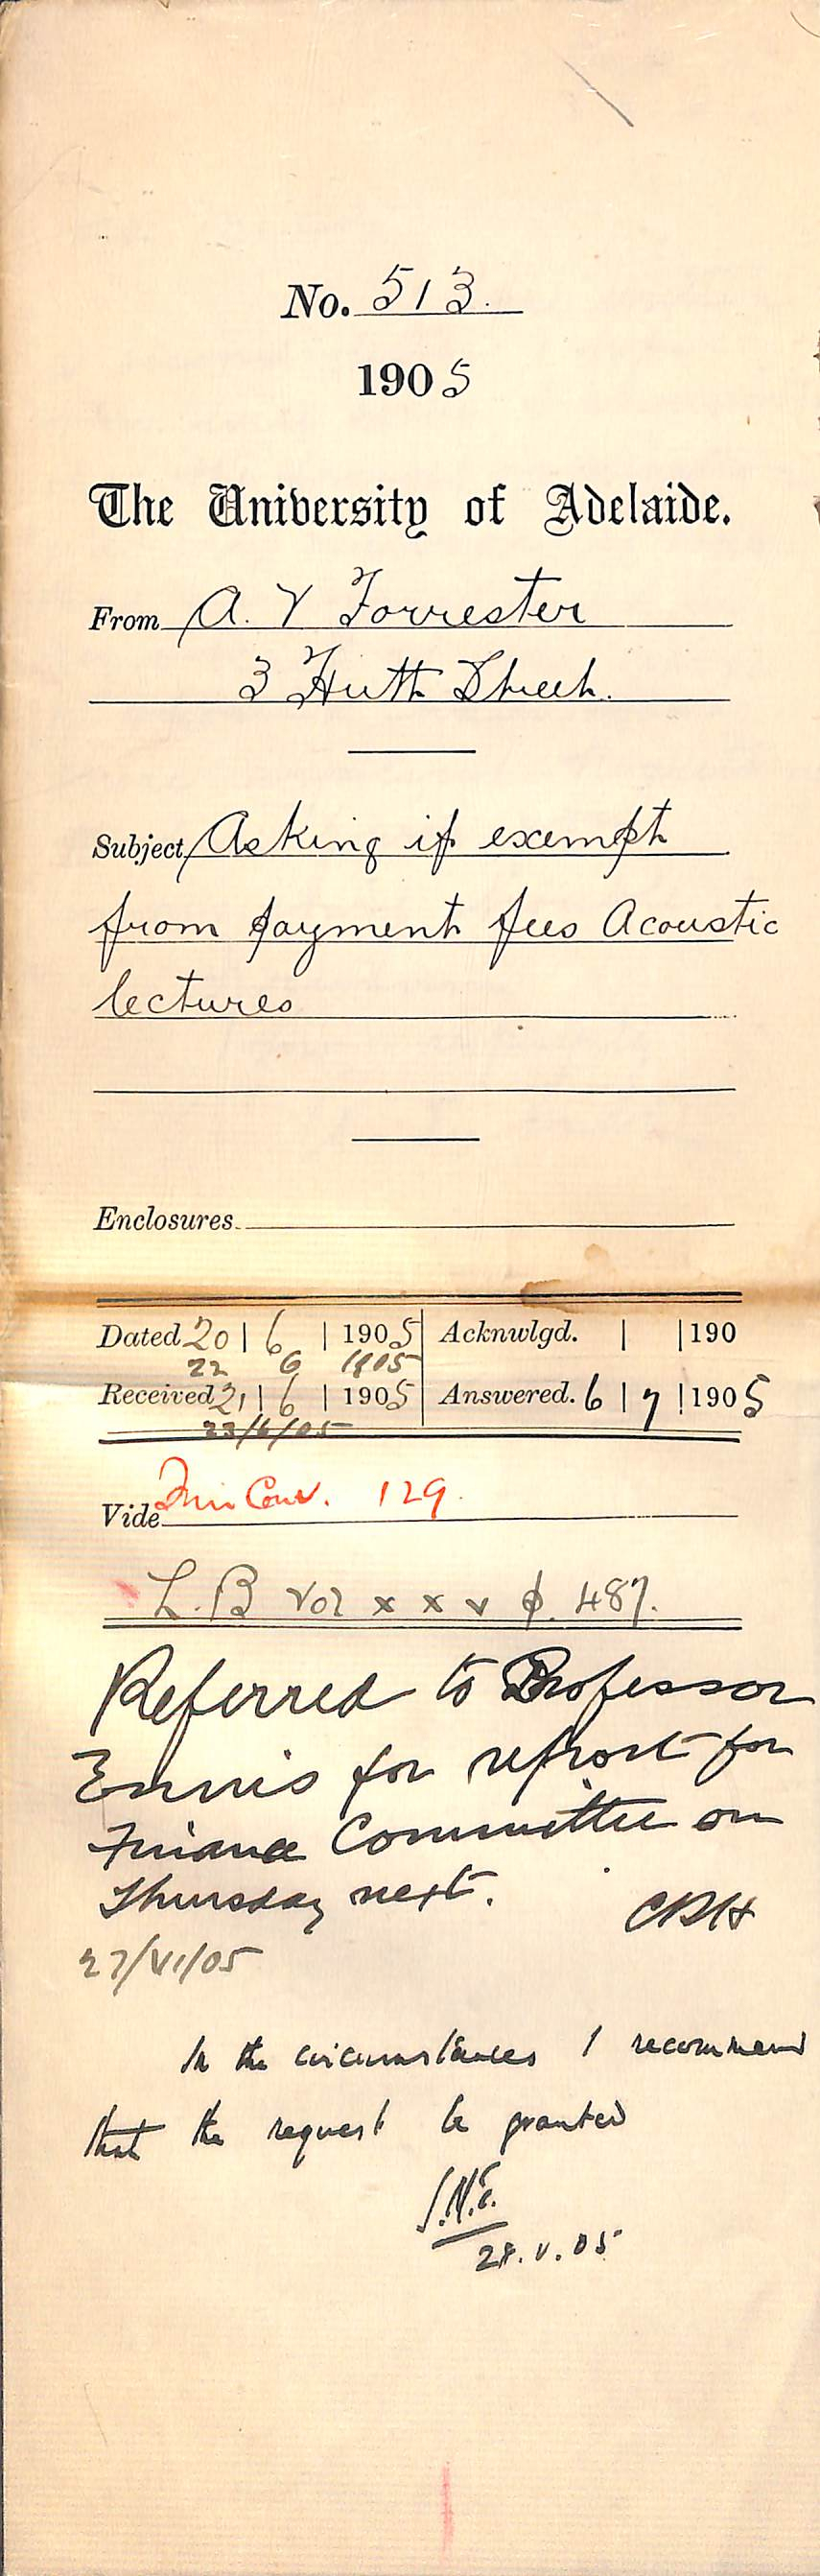 No. 513.
1905
The University of Adelaide.
From A. V Forrester
3 Hutt Street.
Subject Asking if exempt
from payment fees Acoustic
lectures
Enclosures
Dated 20 | 6 | 1905 Acknwlgd. | | 190
22 6 1905
Received 21 | 6 | 1905 Answered. 6 | 7 | 1905
23/6/05
Vide Fin Com. 129.
L.B Vol x x v p. 487.
Referred to Professor
Ennis for report for
Finance Committee on
Thursday next.
CRH
27/VI/05
In the circumstances I recommend
that the request be granted
J.N.E.
28.V.05